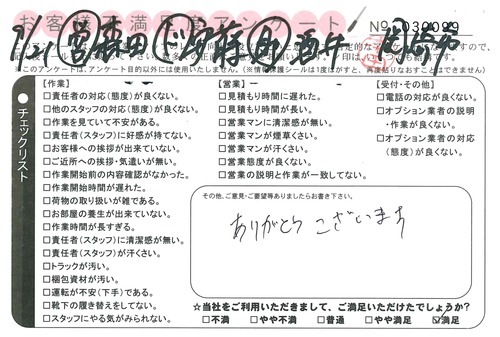 お客様満足度アンケート
7/21 営 森田 ド 前 助 酒井
No. 039099
※このアンケートは、アンケート目的以外には使用いたしません。(※情報保護シールは1度はがすと、再度貼りなおすことはできません)
チェックリスト
【作業】
□責任者の対応(態度)が良くない。
□他のスタッフの対応(態度)が良くない。
□作業を見ていて不安がある。
□責任者(スタッフ)に好感が持てない。
□お客様への挨拶が出来ていない。
□ご近所への挨拶・気遣いが無い。
□作業開始前の内容確認がなかった。
□作業開始時間が遅れた。
□荷物の取り扱いが雑である。
□お部屋の養生が出来ていない。
□作業時間が長すぎる。
□責任者(スタッフ)に清潔感が無い。
□責任者(スタッフ)が汗くさい。
□トラックが汚い。
□梱包資材が汚い。
□運転が不安(下手)である。
□靴下の履き替えをしてない。
□スタッフにやる気がみられない。
【営業】
□見積もり時間に遅れた。
□見積もり時間が長い。
□営業マンに清潔感が無い。
□営業マンが煙草くさい。
□営業マンが汗くさい。
□営業態度が良くない。
□営業の説明と作業が一致してない。
【受付・その他】
□電話の対応が良くない。
□オプション業者の説明
・作業が良くない。
□オプション業者の対応
(態度)が良くない。
その他、ご意見・ご要望等ありましたらお書き下さい。
ありがとうございます
☆当社をご利用いただきまして、ご満足いただけたでしょうか?
□不満 □やや不満 □普通 □やや満足 ☑満足